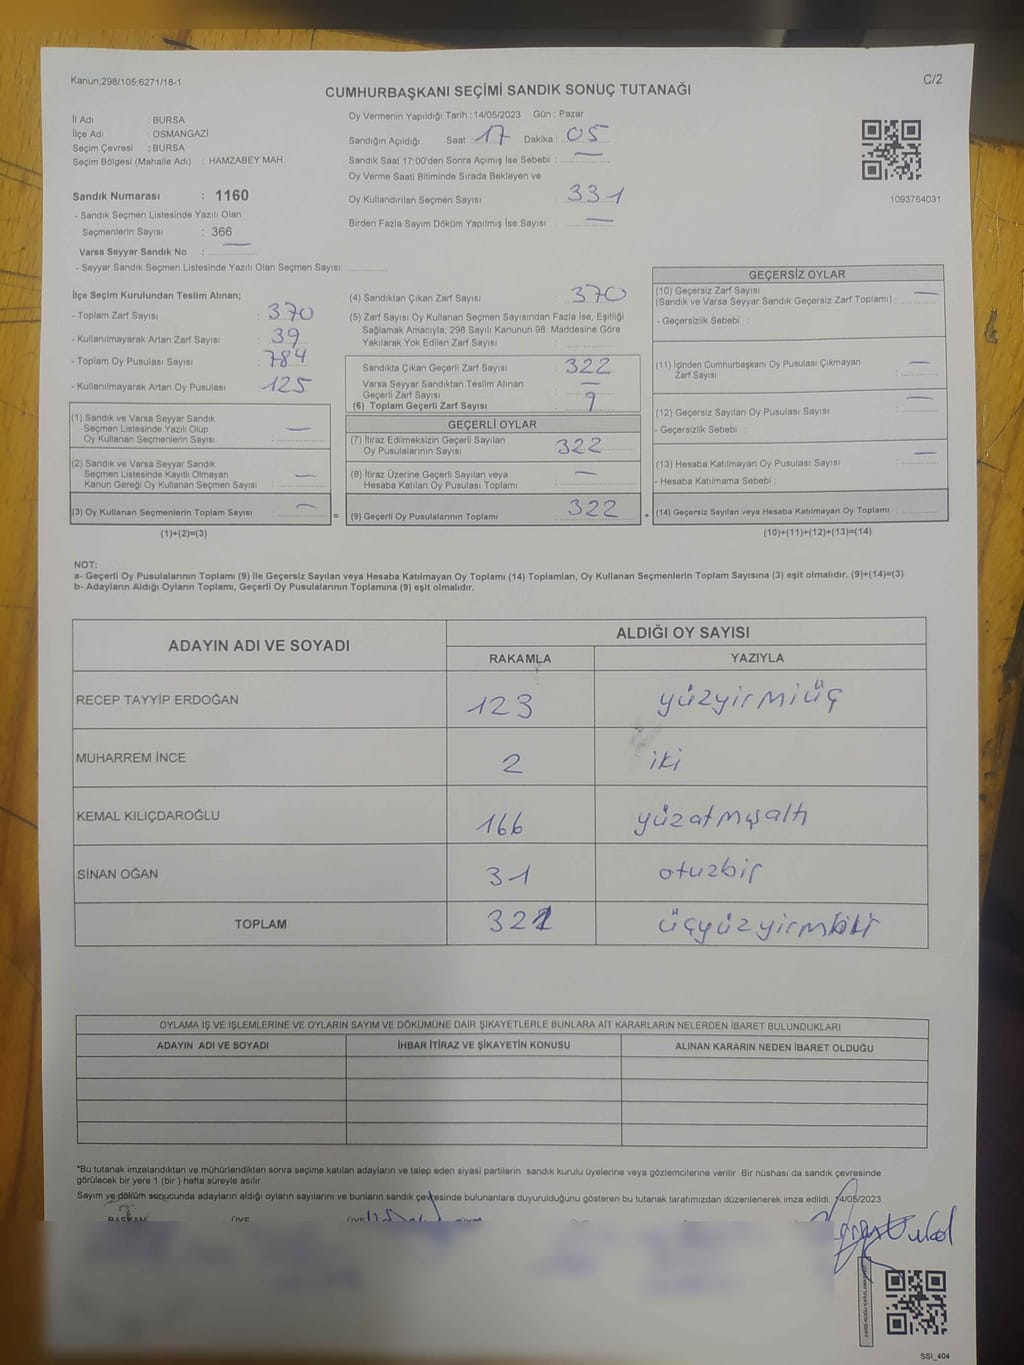 Kanun;298/105;6271/18-1
C/2
CUMHURBAŞKANI SEÇİMİ SANDIK SONUÇ TUTANAĞI
İl Adı : BURSA
İlçe Adı : OSMANGAZİ
Seçim Çevresi : BURSA
Seçim Bölgesi (Mahalle Adı) : HAMZABEY MAH.
Sandık Numarası : 1160
- Sandık Seçmen Listesinde Yazılı Olan
Seçmenlerin Sayısı : 366
Varsa Seyyar Sandık No : —
- Seyyar Sandık Seçmen Listesinde Yazılı Olan Seçmen Sayısı:
Oy Vermenin Yapıldığı Tarih : 14/05/2023 Gün : Pazar
Sandığın Açıldığı Saat : 17 Dakika : 05
Sandık Saat 17:00'den Sonra Açımış İse Sebebi : —
Oy Verme Saati Bitiminde Sırada Bekleyen ve
Oy Kullandırılan Seçmen Sayısı : 331
Birden Fazla Sayım Döküm Yapılmış İse Sayısı : —
1093764031
İlçe Seçim Kurulundan Teslim Alınan;
- Toplam Zarf Sayısı : 370
- Kullanılmayarak Artan Zarf Sayısı : 39
- Toplam Oy Pusulası Sayısı : 784
- Kullanılmayarak Artan Oy Pusulası : 125
(1) Sandık ve Varsa Seyyar Sandık
Seçmen Listesinde Yazılı Olup
Oy Kullanan Seçmenlerin Sayısı : —
(2) Sandık ve Varsa Seyyar Sandık
Seçmen Listesinde Kayıtlı Olmayan
Kanun Gereği Oy Kullanan Seçmen Sayısı : —
(3) Oy Kullanan Seçmenlerin Toplam Sayısı : —
(1)+(2)=(3)
=
(4) Sandıktan Çıkan Zarf Sayısı : 370
(5) Zarf Sayısı Oy Kullanan Seçmen Sayısından Fazla İse, Eşitliği
Sağlamak Amacıyla; 298 Sayılı Kanunun 98. Maddesine Göre
Yakılarak Yok Edilen Zarf Sayısı :
Sandıkta Çıkan Geçerli Zarf Sayısı : 322
Varsa Seyyar Sandıktan Teslim Alınan
Geçerli Zarf Sayısı : —
(6) Toplam Geçerli Zarf Sayısı : 9
GEÇERLİ OYLAR
(7) İtiraz Edilmeksizin Geçerli Sayılan
Oy Pusulalarının Sayısı : 322
(8) İtiraz Üzerine Geçerli Sayılan veya
Hesaba Katılan Oy Pusulası Toplamı : —
(9) Geçerli Oy Pusulalarının Toplamı : 322
+
GEÇERSİZ OYLAR
(10) Geçersiz Zarf Sayısı
(Sandık ve Varsa Seyyar Sandık Geçersiz Zarf Toplamı) : —
- Geçersizlik Sebebi :
(11) İçinden Cumhurbaşkanı Oy Pusulası Çıkmayan
Zarf Sayısı : —
(12) Geçersiz Sayılan Oy Pusulası Sayısı : —
- Geçersizlik Sebebi :
(13) Hesaba Katılmayan Oy Pusulası Sayısı : —
- Hesaba Katılmama Sebebi :
(14) Geçersiz Sayılan veya Hesaba Katılmayan Oy Toplamı :
(10)+(11)+(12)+(13)=(14)
NOT:
a- Geçerli Oy Pusulalarının Toplamı (9) ile Geçersiz Sayılan veya Hesaba Katılmayan Oy Toplamı (14) Toplamları, Oy Kullanan Seçmenlerin Toplam Sayısına (3) eşit olmalıdır. (9)+(14)=(3)
b- Adayların Aldığı Oyların Toplamı, Geçerli Oy Pusulalarının Toplamına (9) eşit olmalıdır.
ADAYIN ADI VE SOYADI ALDIĞI OY SAYISI
RAKAMLA YAZIYLA
RECEP TAYYİP ERDOĞAN 123 yüzyirmiüç
MUHARREM İNCE 2 iki
KEMAL KILIÇDAROĞLU 166 yüzatmışaltı
SİNAN OĞAN 31 otuzbir
TOPLAM 322 üçyüzyirmiiki
OYLAMA İŞ VE İŞLEMLERİNE VE OYLARIN SAYIM VE DÖKÜMÜNE DAİR ŞİKAYETLERLE BUNLARA AİT KARARLARIN NELERDEN İBARET BULUNDUKLARI
ADAYIN ADI VE SOYADI İHBAR İTİRAZ VE ŞİKAYETİN KONUSU ALINAN KARARIN NEDEN İBARET OLDUĞU
*Bu tutanak imzalandıktan ve mühürlendikten sonra seçime katılan adayların ve talep eden siyasi partilerin sandık kurulu üyelerine veya gözlemcilerine verilir. Bir nüshası da sandık çevresinde
görülecek bir yere 1 (bir) hafta süreyle asılır.
Sayım ve döküm sonucunda adayların aldığı oyların sayılarını ve bunların sandık çevresinde bulunanlara duyurulduğunu gösteren bu tutanak tarafımızdan düzenlenerek imza edildi. 14/05/2023
BAŞKAN ÜYE ÜYE
SSI_404